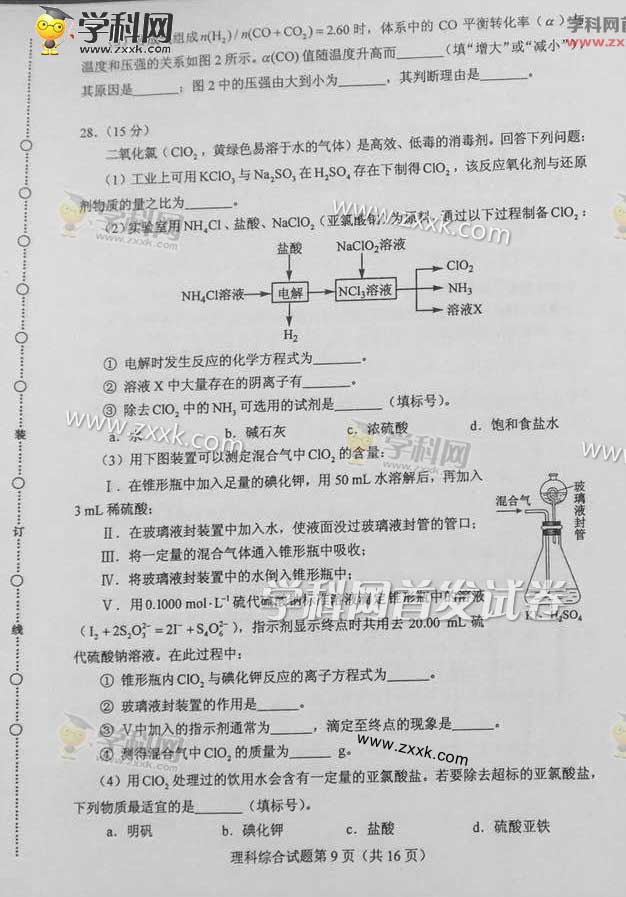 学科网
www.zxxk.com
学科网
www.zxxk
组成n(H₂)/n(CO+CO₂)=2.60时，体系中的 CO 平衡转化率（α）与
温度和压强的关系如图 2 所示。α(CO) 值随温度升高而______（填“增大”或“减小”），
其原因是______；图 2 中的压强由大到小为______，其判断理由是______。
28.（15 分）
二氧化氯（ClO₂，黄绿色易溶于水的气体）是高效、低毒的消毒剂。回答下列问题：
（1）工业上可用 KClO₃ 与 Na₂SO₃ 在 H₂SO₄ 存在下制得 ClO₂，该反应氧化剂与还原
剂物质的量之比为______。
学科网
zxxk.com
www.zxxk.com
（2）实验室用 NH₄Cl、盐酸、NaClO₂（亚氯酸钠）为原料，通过以下过程制备 ClO₂：
盐酸
NaClO₂溶液
NH₄Cl溶液
电解
NCl₃溶液
ClO₂
NH₃
溶液X
H₂
① 电解时发生反应的化学方程式为______。
② 溶液 X 中大量存在的阴离子有______。
③ 除去 ClO₂ 中的 NH₃ 可选用的试剂是______（填标号）。
a. 水 b. 碱石灰 c. 浓硫酸 d. 饱和食盐水
www.zxxk.com
学科网
zxxk.com
www.zxxk.com
（3）用下图装置可以测定混合气中 ClO₂ 的含量：
Ⅰ. 在锥形瓶中加入足量的碘化钾，用 50 mL 水溶解后，再加入
3 mL 稀硫酸；
Ⅱ. 在玻璃液封装置中加入水，使液面没过玻璃液封管的管口；
Ⅲ. 将一定量的混合气体通入锥形瓶中吸收；
Ⅳ. 将玻璃液封装置中的水倒入锥形瓶中；
Ⅴ. 用 0.1000 mol·L⁻¹ 硫代硫酸钠标准溶液滴定锥形瓶中的溶液
（I₂+2S₂O₃²⁻=2I⁻+S₄O₆²⁻），指示剂显示终点时共用去 20.00 mL 硫
代硫酸钠溶液。在此过程中：
混合气
玻璃液封管
H₂SO₄
学科网首发试卷
① 锥形瓶内 ClO₂ 与碘化钾反应的离子方程式为______。
② 玻璃液封装置的作用是______。
③ Ⅴ中加入的指示剂通常为______，滴定至终点的现象是______。
④ 测得混合气中 ClO₂ 的质量为______ g。
学科网
zxxk.com
www.zxxk.com
（4）用 ClO₂ 处理过的饮用水会含有一定量的亚氯酸盐。若要除去超标的亚氯酸盐，
下列物质最适宜的是______（填标号）。
a. 明矾 b. 碘化钾 c. 盐酸 d. 硫酸亚铁
理科综合试题第 9 页（共 16 页）
装
订
线